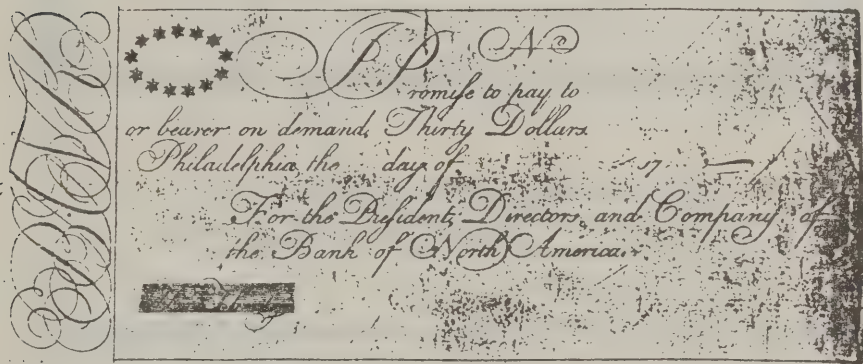 No
I Promise to pay to
or bearer on demand, Thirty Dollars
Philadelphia the day of 17
For the President, Directors, and Company of
the Bank of North America.